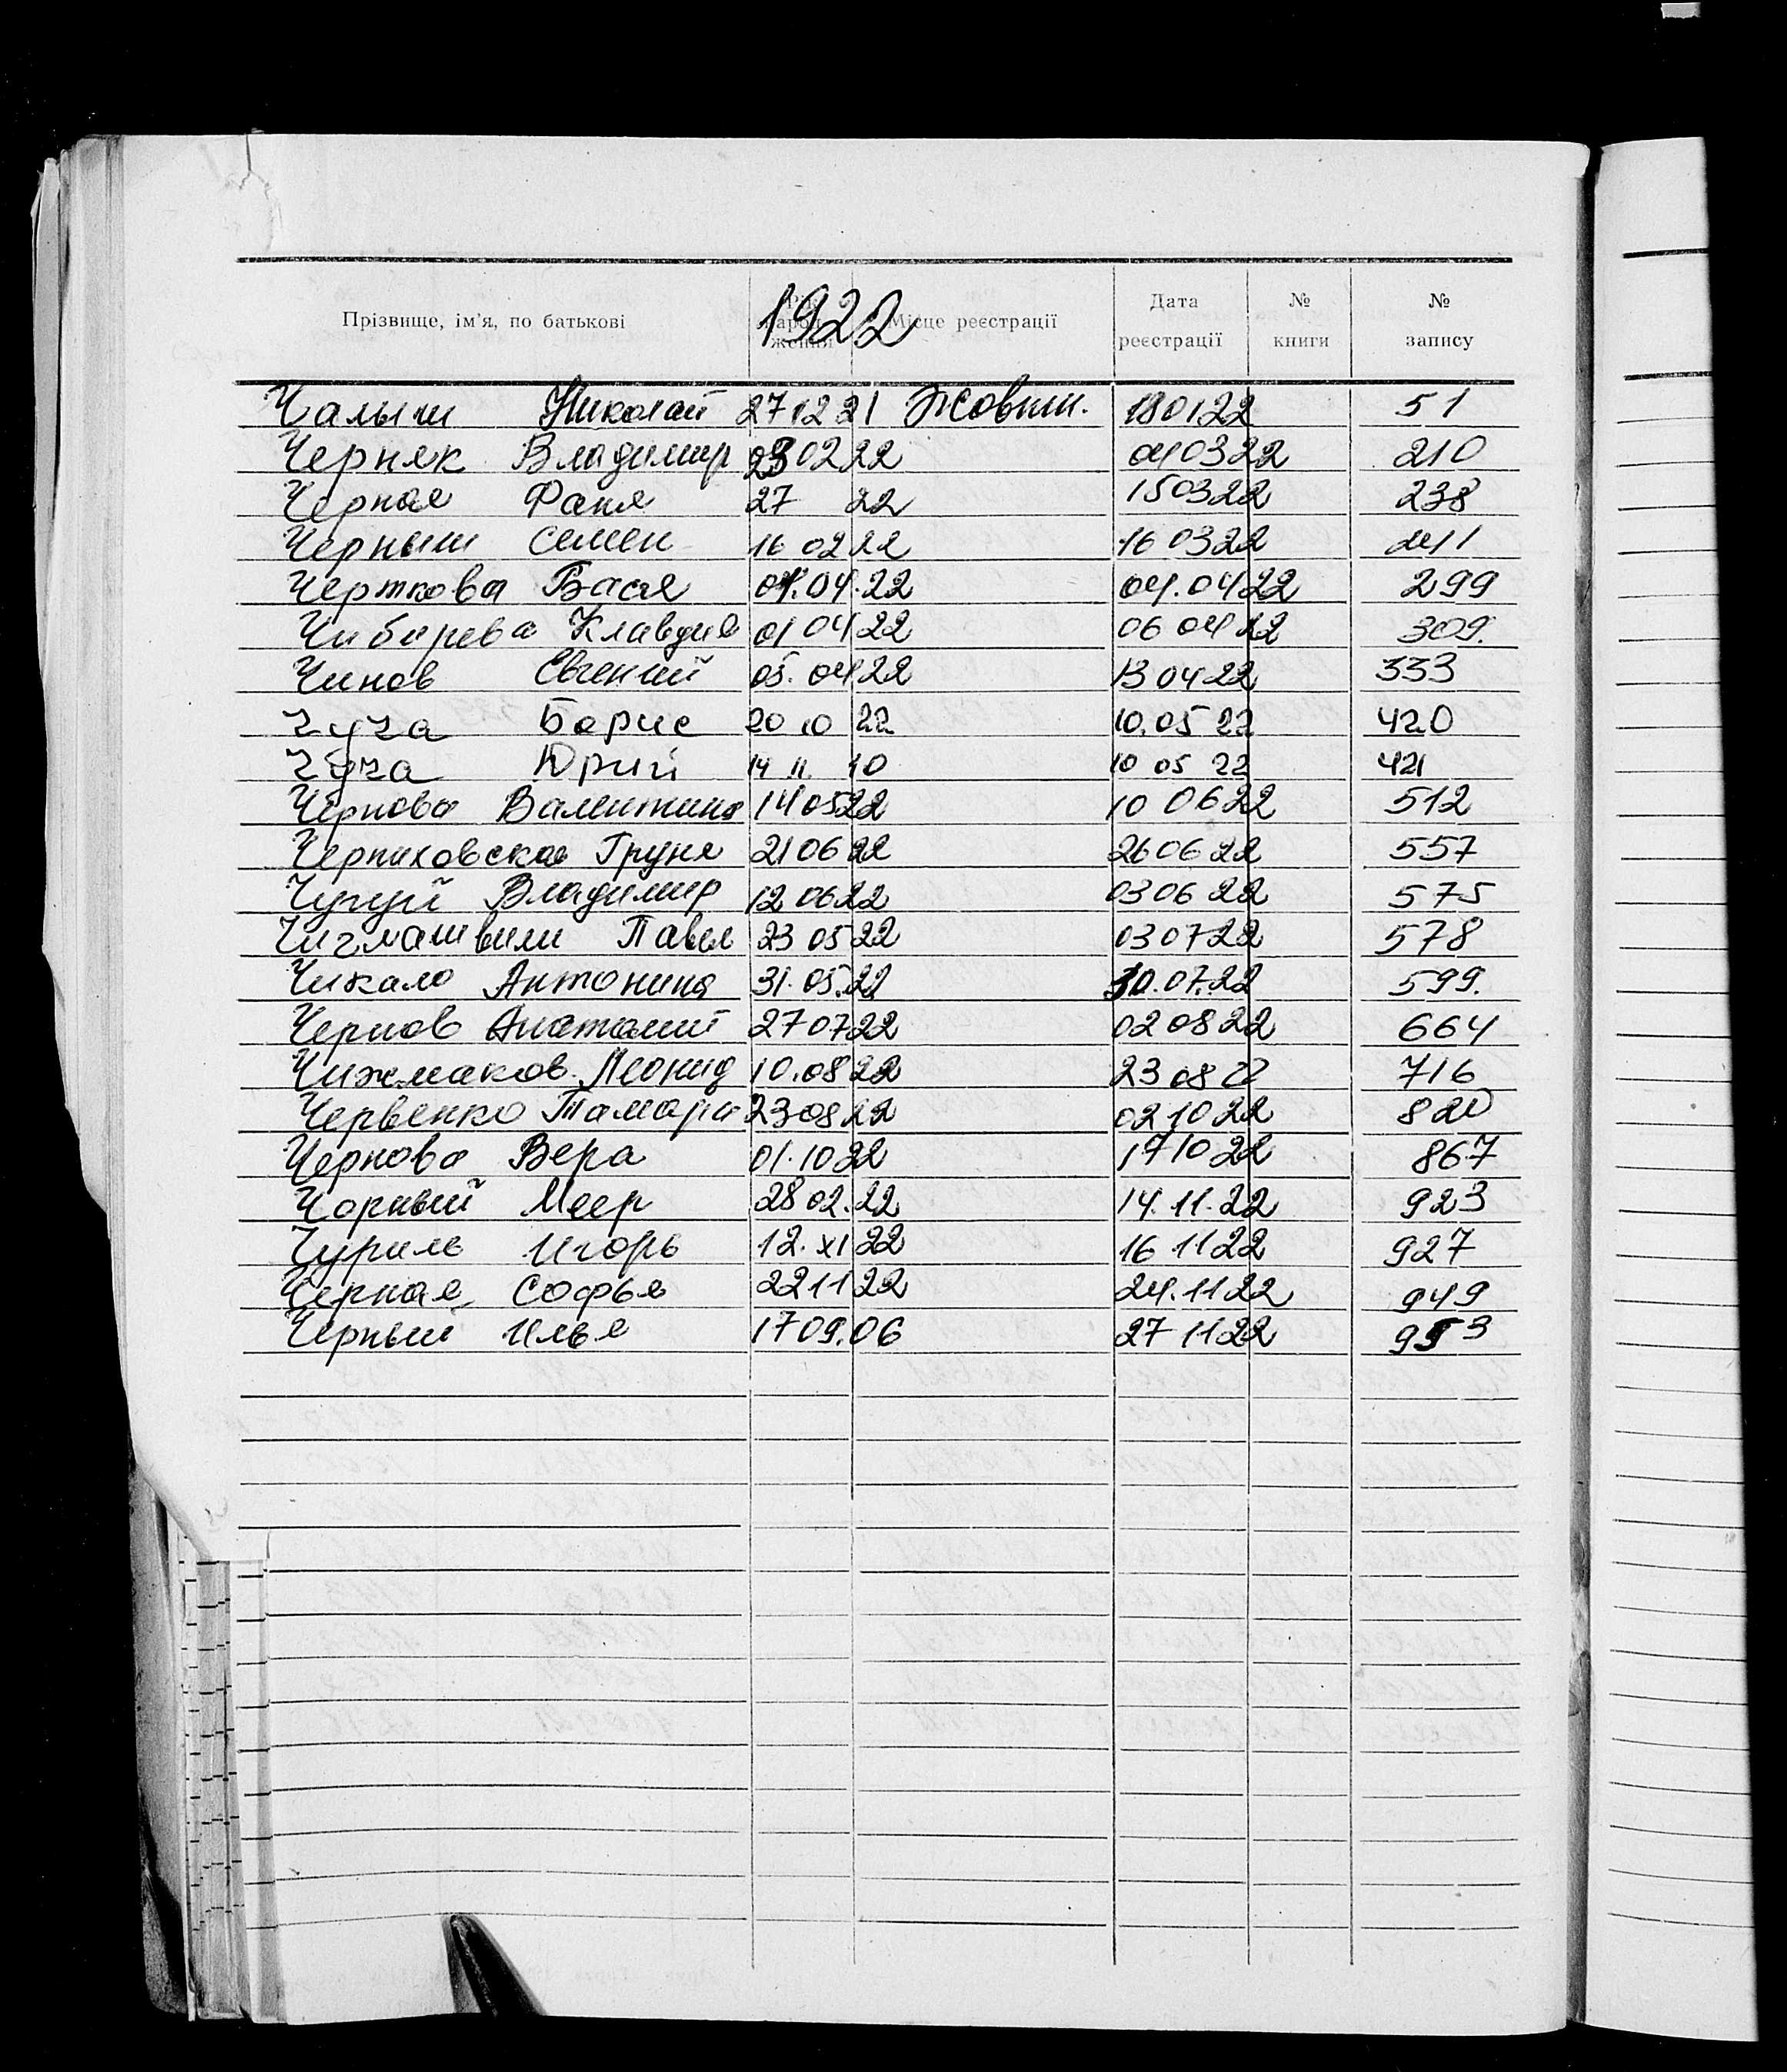 1922
Прізвище, ім'я, по батькові Рік народження Місце реєстрації Дата реєстрації № книги № запису
Чалыш Николай 27 12 21 Жовтн. 18 01 22 51
Черняк Владимир 23 02 22 04 03 22 210
Черная Фаня 27 22 15 03 22 238
Черныш Семен 16 02 22 16 03 22 241
Черткова Бася 04.04.22 04.04 22 299
Чибирева Клавдия 01 04 22 06 04 22 309.
Чинов Евгений 05. 04 22 13 04 22 333
Чуча Борис 20 10 22 10.05 22 420
Чуча Юрий 14 11. 10 10 05 22 421
Чернова Валентина 14 05 22 10 06 22 512
Черниховская Груня 21 06 22 26 06 22 557
Чугуй Владимир 12 06 22 03 06 22 575
Чиглашвили Павел 23 05 22 03 07 22 578
Чикало Антонина 31.05.22 10.07.22 599.
Чернов Анатолий 27 07 22 02 08 22 664
Чижмаков Леонид 10.08 22 23 08 22 716
Червенко Тамара 23 08 22 02 10 22 820
Чернова Вера 01.10 22 17 10 22 867
Чорный Меер 28 02.22 14.11.22 923
Чуриль Игорь 12.XI 22 16 11 22 927
Черная Софья 22 11 22 24.11 22 949
Черный Илья 17 09.06 27 11 22 953